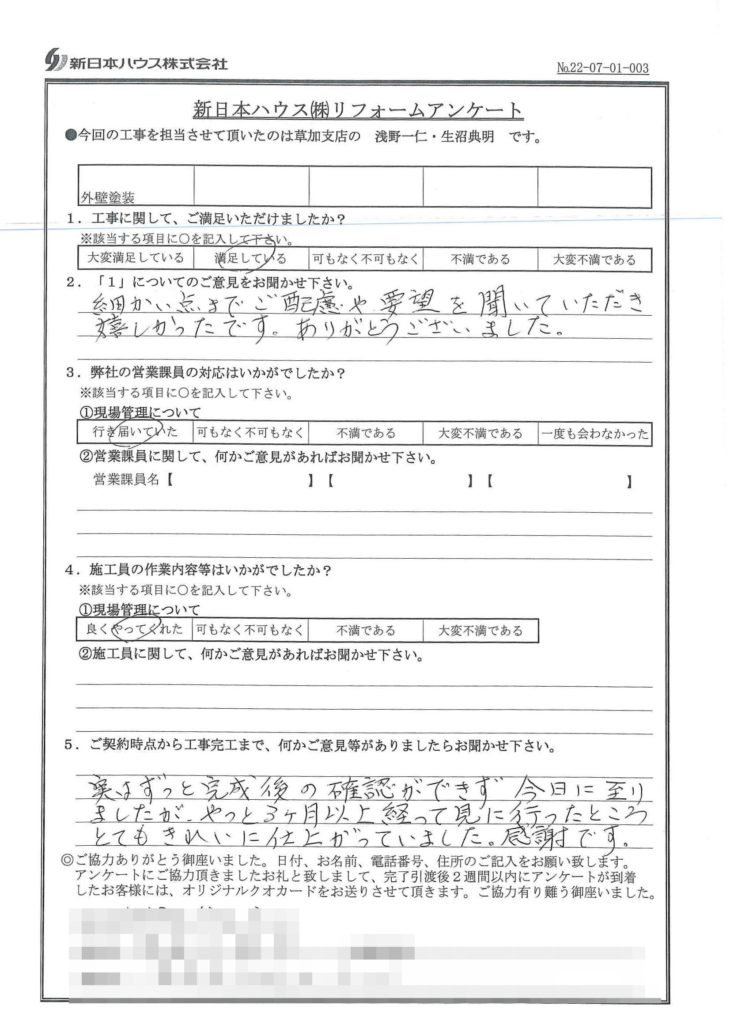 新日本ハウス株式会社
№22-07-01-003
新日本ハウス㈱リフォームアンケート
●今回の工事を担当させて頂いたのは草加支店の 浅野一仁・生沼典明 です。
外壁塗装
1．工事に関して、ご満足いただけましたか？
※該当する項目に○を記入して下さい。
大変満足している 満足している 可もなく不可もなく 不満である 大変不満である
2．「1」についてのご意見をお聞かせ下さい。
細かい点までご配慮や要望を聞いていただき
嬉しかったです。ありがとうございました。
3．弊社の営業課員の対応はいかがでしたか？
※該当する項目に○を記入して下さい。
①現場管理について
行き届いていた 可もなく不可もなく 不満である 大変不満である 一度も会わなかった
②営業課員に関して、何かご意見があればお聞かせ下さい。
営業課員名【 】【 】【 】
4．施工員の作業内容等はいかがでしたか？
※該当する項目に○を記入して下さい。
①現場管理について
良くやってくれた 可もなく不可もなく 不満である 大変不満である
②施工員に関して、何かご意見があればお聞かせ下さい。
5．ご契約時点から工事完工まで、何かご意見等がありましたらお聞かせ下さい。
実はずっと完成後の確認ができず 今日に至り
ましたが、やっと3ヶ月以上経って見に行ったところ
とてもきれいに仕上がっていました。感謝です。
◎ご協力ありがとう御座いました。日付、お名前、電話番号、住所のご記入をお願い致します。
アンケートにご協力頂きましたお礼と致しまして、完了引渡後２週間以内にアンケートが到着
したお客様には、オリジナルクオカードをお送りさせて頂きます。ご協力有り難う御座いました。